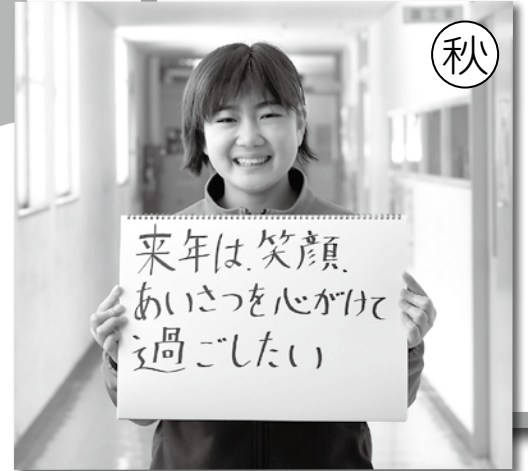 秋
来年は、笑顔、
あいさつを心がけて
過ごしたい